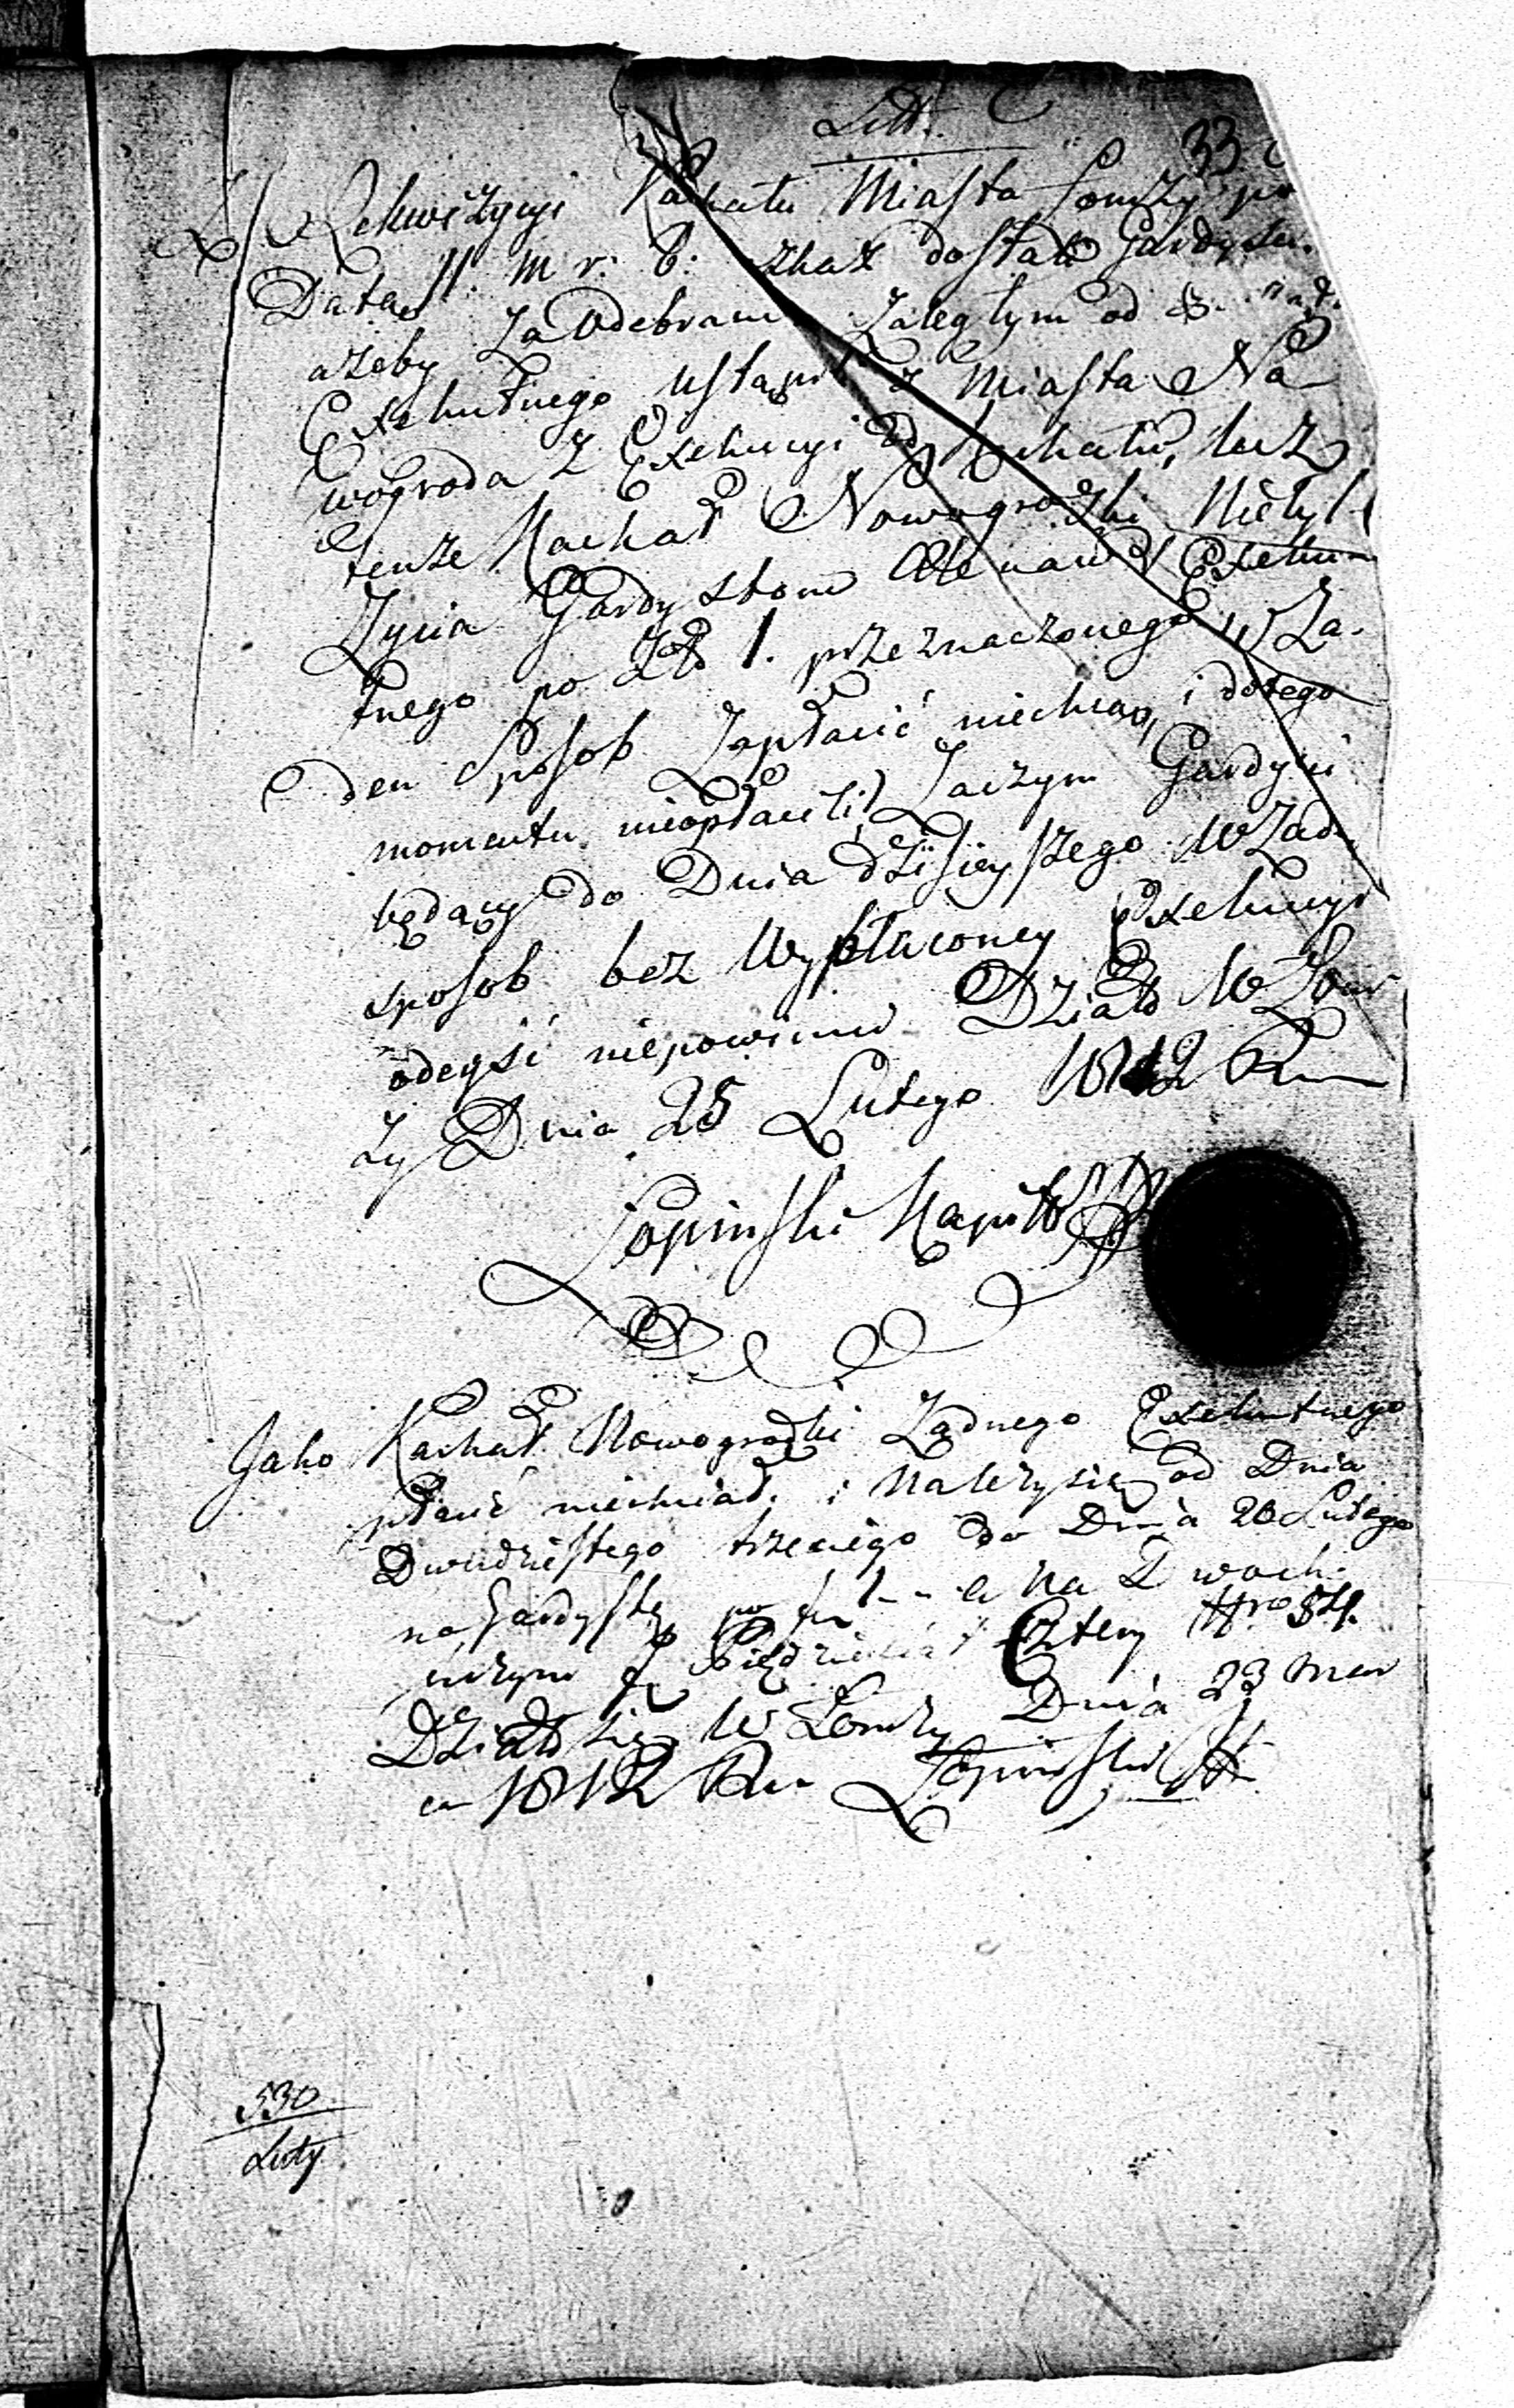 Litt. C
33
Z Rekwizycyi Kachału Miasta Łomży po
Datą 11. m r. b. zkaz dostali Gardyscu
ażeby za Odebraniu Zaległym od
Exekutnego ustąpił z Miasta No
wogroda z Exekucyi do Kachału, lecz
tenże Kachał Nowogrodzki Nietyl
Zycia Gardystom Ale nawet Exeku
tnego po Zł 1. przeznaczonego w Ża-
den Sposob Zapłacić niechcą, i dotego
momentu nieopłacili, Zaczym Gardyści
będący do Dnia dzisieyszego w Żade
sposob bez Wypłaconey Exekucyi
odeyść niepowinni Działo w Łom
ży Dnia 25 Lutego 1812 Ru
Łopinski Kapit
Jako Kachał Nowogrodzki Żadnego Exekutnego
płacić niechciał, i Należy się od Dnia
Dwudziestego trzeciego do Dnia 20 Lutego
na Gardystę po f 1 - a Na Dwoch
czyni f Piędziesiąt Cztery Nro 54.
Działo się w Łomży Dnia 23 Mar
ca 1812 Ru Łopinski
530
Luty